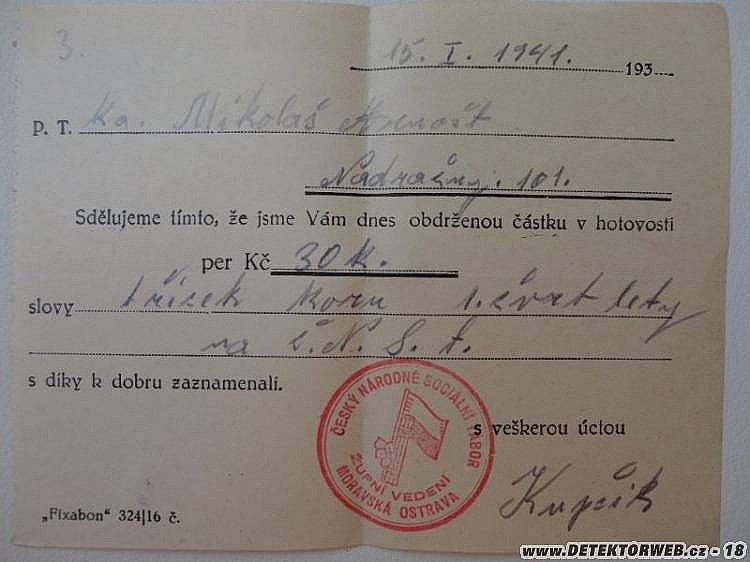 3.
15. I. 1941. 193
P. T. Ka. Mikoláš Arnošt
Nádražny. 101.
Sdělujeme tímto, že jsme Vám dnes obdrženou částku v hotovosti
per Kč 30 k.
slovy třicek korn 1. čvrt lety
na Č. N. S. t.
s díky k dobru zaznamenali.
ČESKÝ NÁRODNĚ SOCIÁLNÍ TÁBOR
ŽUPNÍ VEDENÍ
MORAVSKÁ OSTRAVA
s veškerou úctou
Kupčík
„Fixabon" 324|16 č.
www.DETEKTORWEB.cz - 18